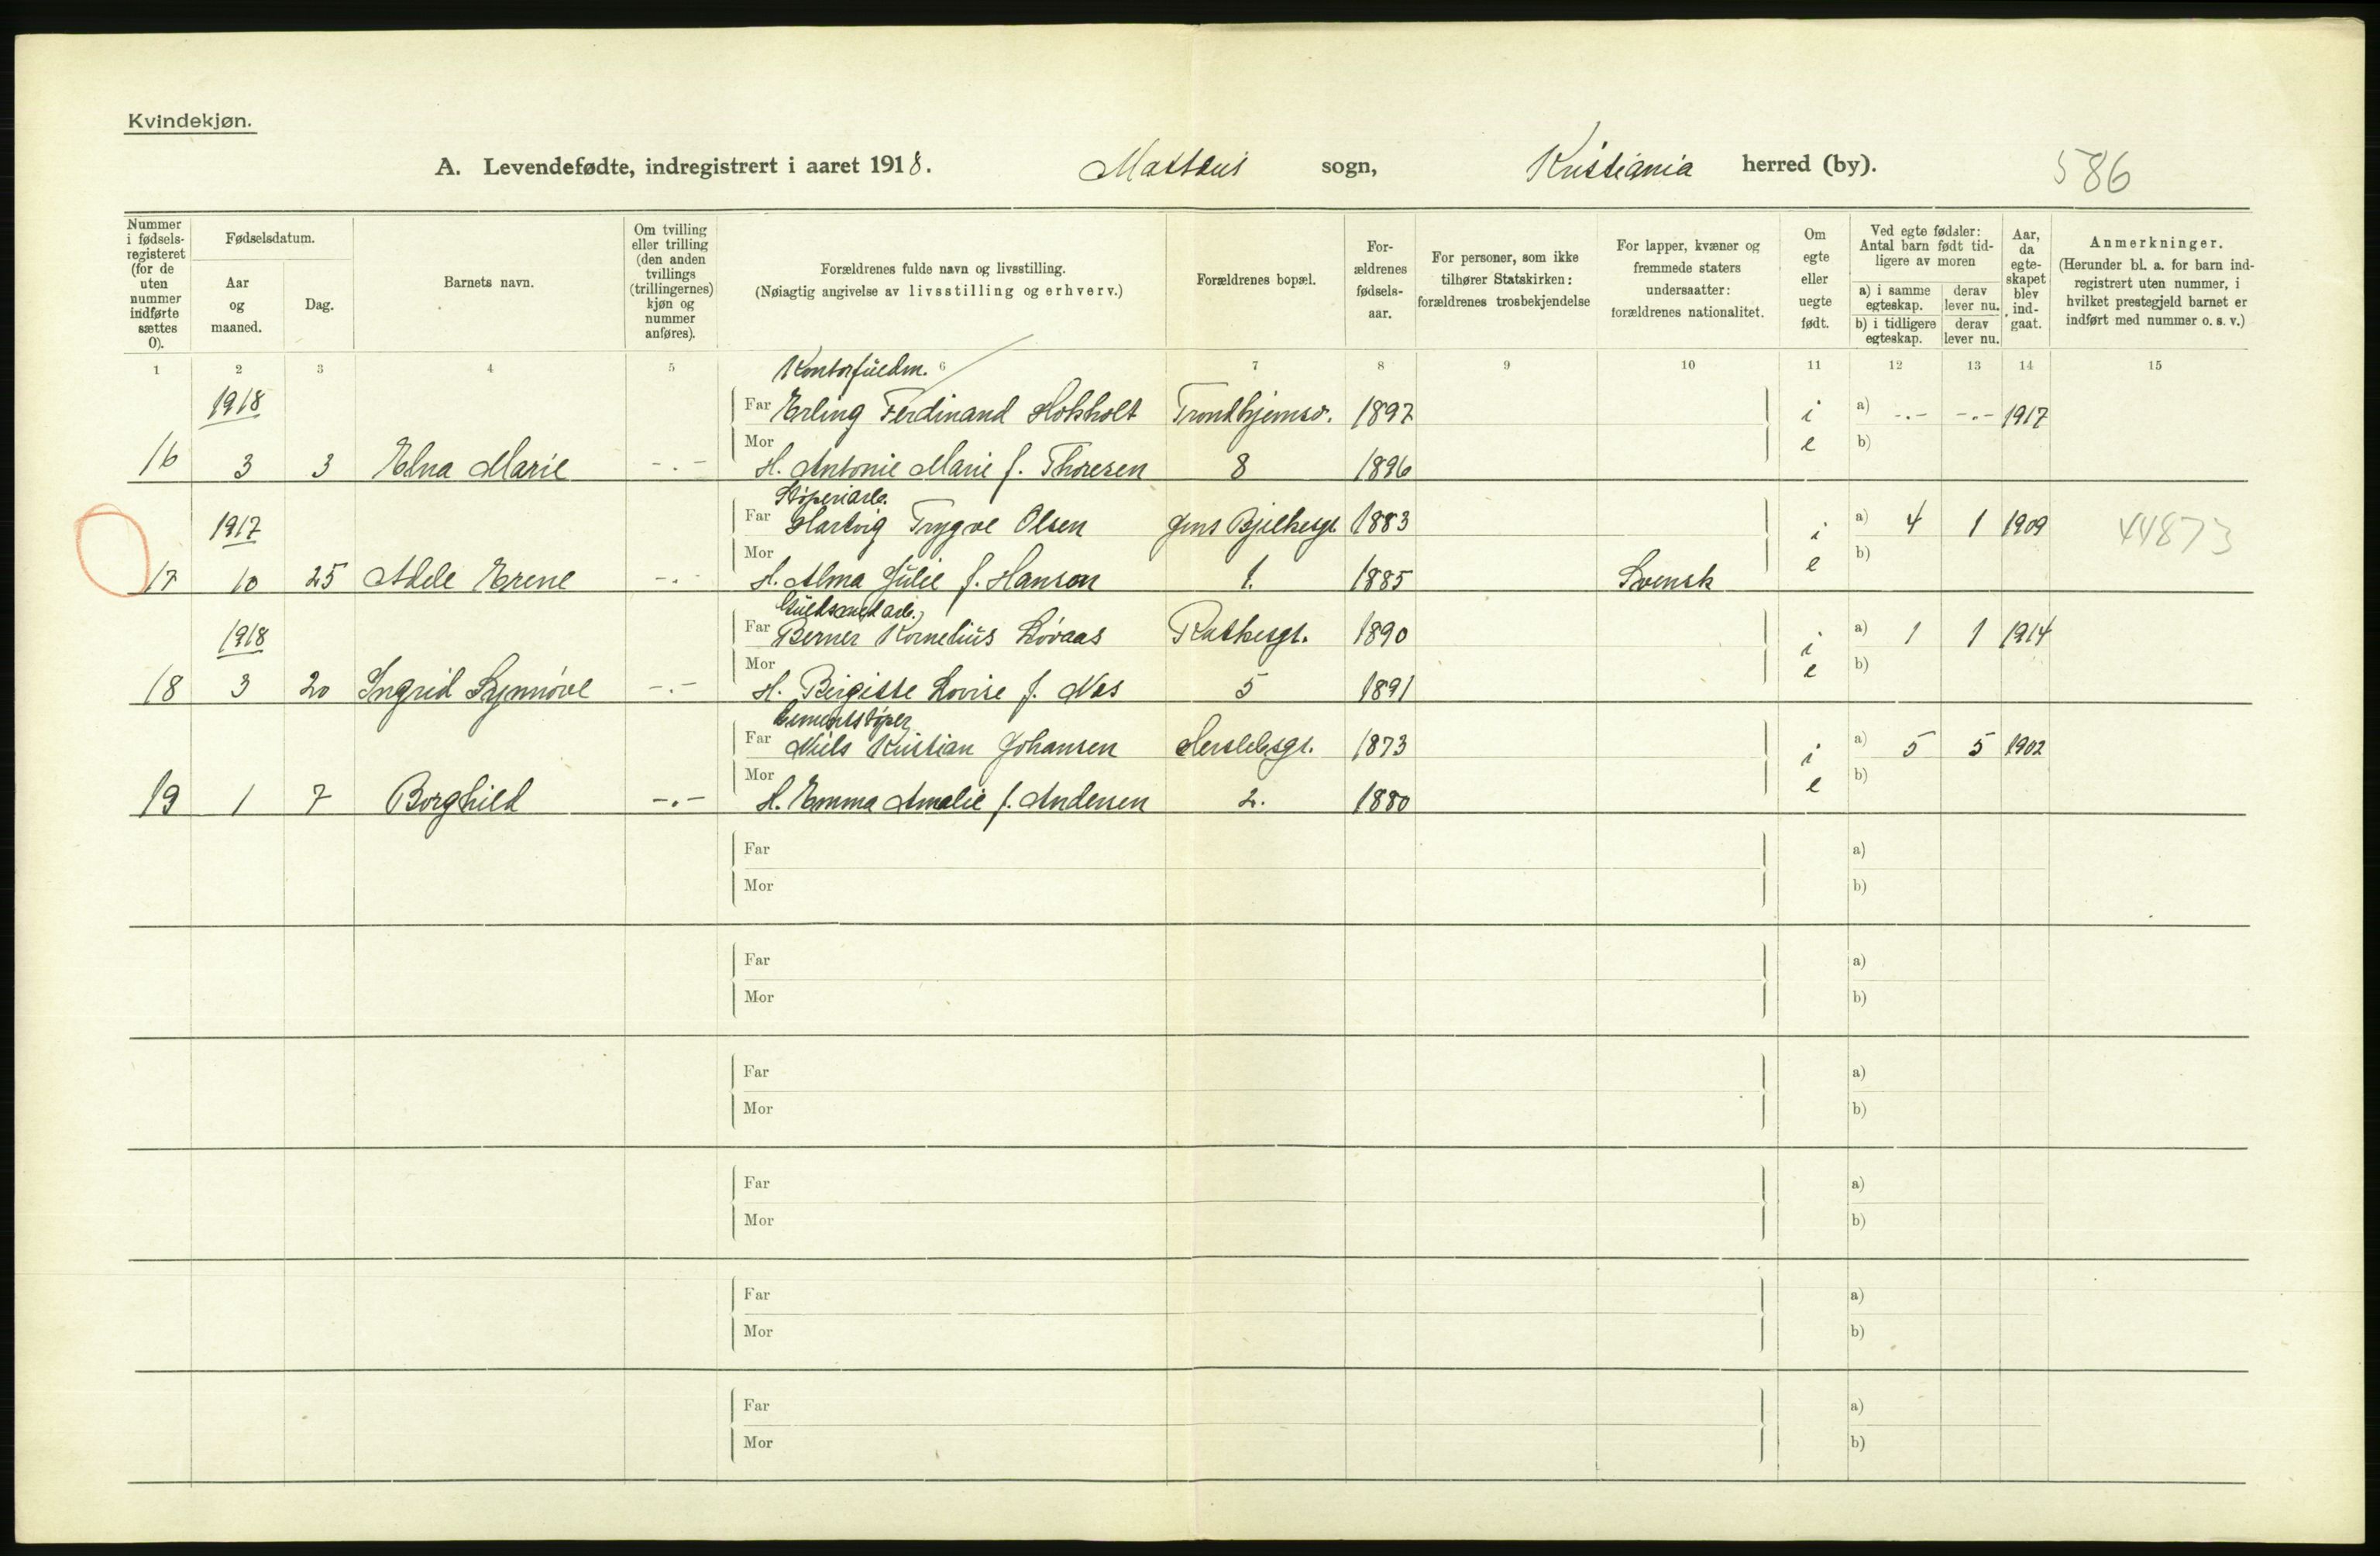 Kvindekjøn.
A. Levendefødte, indregistrert i aaret 1918. Mattæus sogn, Kristiania herred (by). 586
Nummer i fødselsregisteret (for de uten nummer indførte sættes 0).
Fødselsdatum.
Aar og maaned.
Dag.
Barnets navn.
Om tvilling eller trilling (den anden tvillings (trillingernes) kjøn og nummer anføres).
Forældrenes fulde navn og livsstilling.
(Nøiagtig angivelse av livsstilling og erhverv.)
Forældrenes bopæl.
Forældrenes fødselsaar.
For personer, som ikke tilhører Statskirken: forældrenes trosbekjendelse
For lapper, kvæner og fremmede staters undersaatter: forældrenes nationalitet.
Om egte eller uegte født.
Ved egte fødsler: Antal barn født tidligere av moren
a) i samme egteskap. derav lever nu.
b) i tidligere egteskap. derav lever nu.
Aar, da egteskapet blev indgaat.
Anmerkninger.
(Herunder bl. a. for barn indregistrert uten nummer, i hvilket prestegjeld barnet er indført med nummer o. s. v.)
1 2 3 4 5 6 7 8 9 10 11 12 13 14 15
Kontorfuldm.
1918 Far Erling Ferdinand Hokholt Trondhjemsv. 1897 i a) -.- -.- 1917
16 3 3 Edna Marie -.- Mor H. Antonie Marie f. Thoresen 8 1896 e b)
Støperiarb.
1917 Far Hartvig Trygve Olsen Jens Bjelkesgt 1883 i a) 4 1 1909 44873
17 10 25 Adele Erene -.- Mor H. Alma Julie f. Hanson 1. 1885 Svensk e b)
Guldsmedarb.
1918 Far Berner Kornelius Løvaas Rathkesgt. 1890 i a) 1 1 1914
18 3 20 Ingrid Synnøve -.- Mor H. Birgitte Lovise f. Nes 5 1891 e b)
Cementstøper
Far Niels Kristian Johansen Herslebsgt. 1873 i a) 5 5 1902
19 1 7 Borghild -.- Mor H. Emma Amalie f. Andersen 2. 1880 e b)
Far a)
Mor b)
Far a)
Mor b)
Far a)
Mor b)
Far a)
Mor b)
Far a)
Mor b)
Far a)
Mor b)